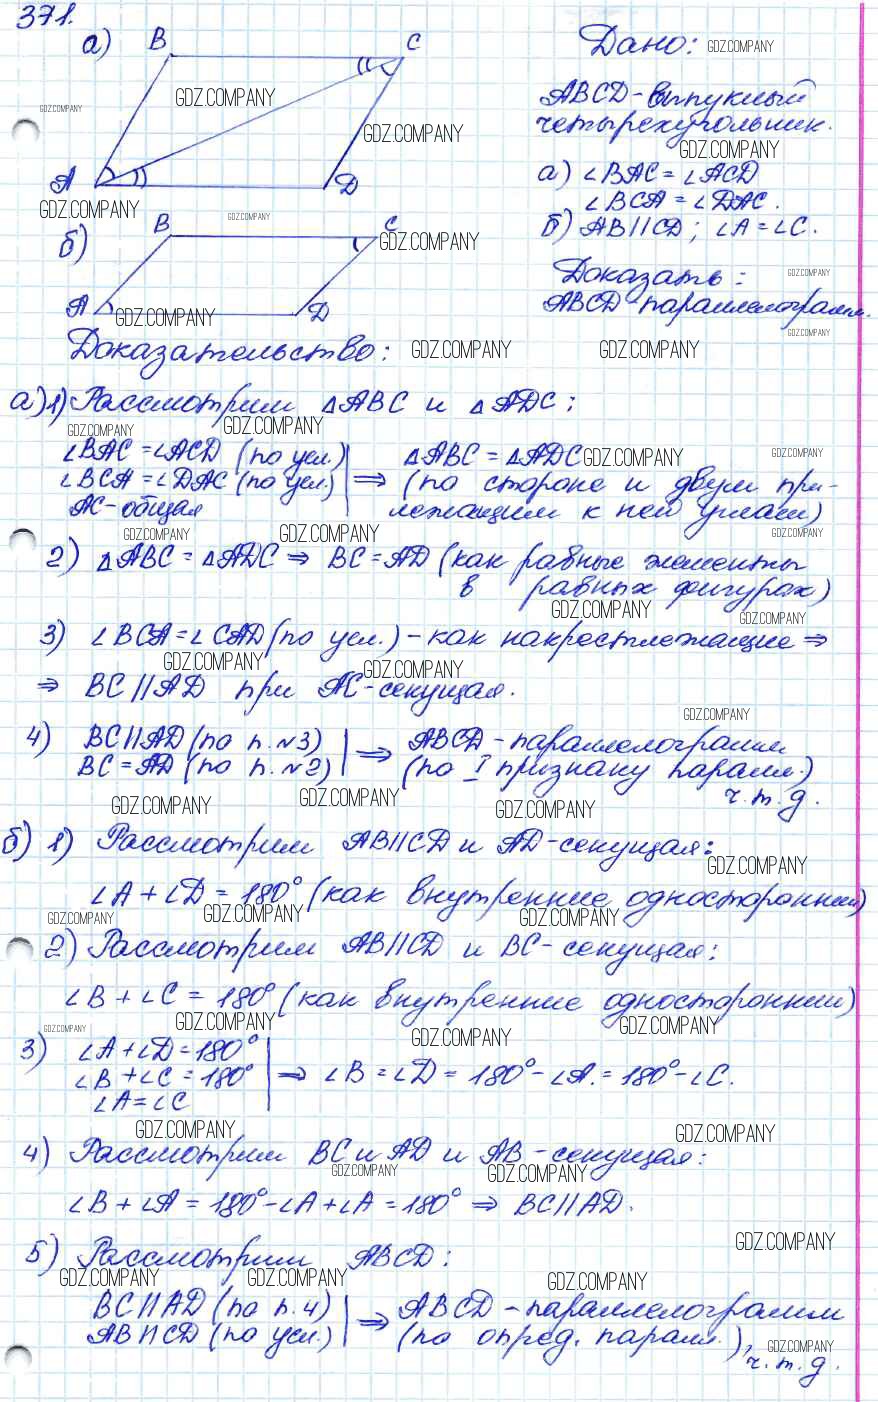 371.
а)
B
C
A
D
Дано:
ABCD - выпуклый
четырехугольник.
а) ∠BAC = ∠ACD
∠BCA = ∠DAC.
б) AB || CD; ∠A = ∠C.
б)
B
C
A
D
Доказать:
ABCD - параллелограмм.
Доказательство:
а) 1) Рассмотрим △ABC и △ADC:
∠BAC = ∠ACD (по усл.)
∠BCA = ∠DAC (по усл.)
AC - общая
⇒ △ABC = △ADC
(по стороне и двум при-
лежащим к ней углам)
2) △ABC = △ADC ⇒ BC = AD (как равные элементы
в равных фигурах)
3) ∠BCA = ∠CAD (по усл.) - как накрестлежащие ⇒
⇒ BC || AD при AC - секущая.
4) BC || AD (по п. №3)
BC = AD (по п. №2)
⇒ ABCD - параллелограмм
(по I признаку паралл.)
ч.т.д.
б) 1) Рассмотрим AB || CD и AD - секущая:
∠A + ∠D = 180° (как внутренние односторонние)
2) Рассмотрим AB || CD и BC - секущая:
∠B + ∠C = 180° (как внутренние односторонние)
3) ∠A + ∠D = 180°
∠B + ∠C = 180°
∠A = ∠C
⇒ ∠B = ∠D = 180° - ∠A. = 180° - ∠C.
4) Рассмотрим BC и AD и AB - секущая:
∠B + ∠A = 180° - ∠A + ∠A = 180° ⇒ BC || AD.
5) Рассмотрим ABCD:
BC || AD (по п. 4)
AB || CD (по усл.)
⇒ ABCD - параллелограмм
(по опред. паралл.),
ч.т.д.
GDZ.COMPANY